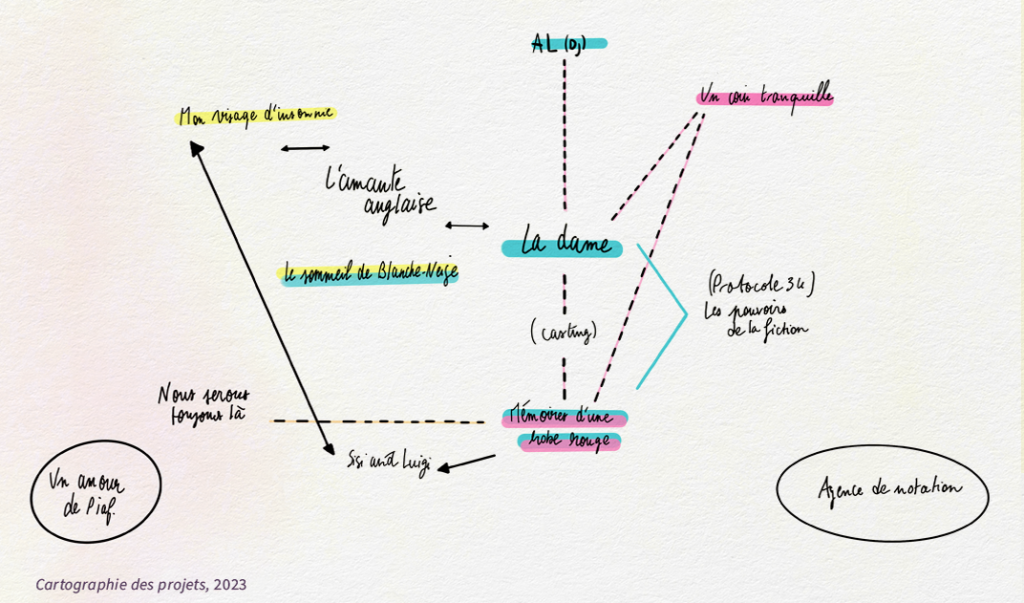 AL (Dj)
Un coin tranquille
Mon visage d'insomnie
L'amante
anglaise
La dame
Le sommeil de Blanche-Neige
(Protocole 34)
Les pouvoirs
de la fiction
(casting)
Nous serons
toujours là
Mémoires d'une
robe rouge
Sisi and Luigi
Un amour
de Piaf.
Agence de notation
Cartographie des projets, 2023